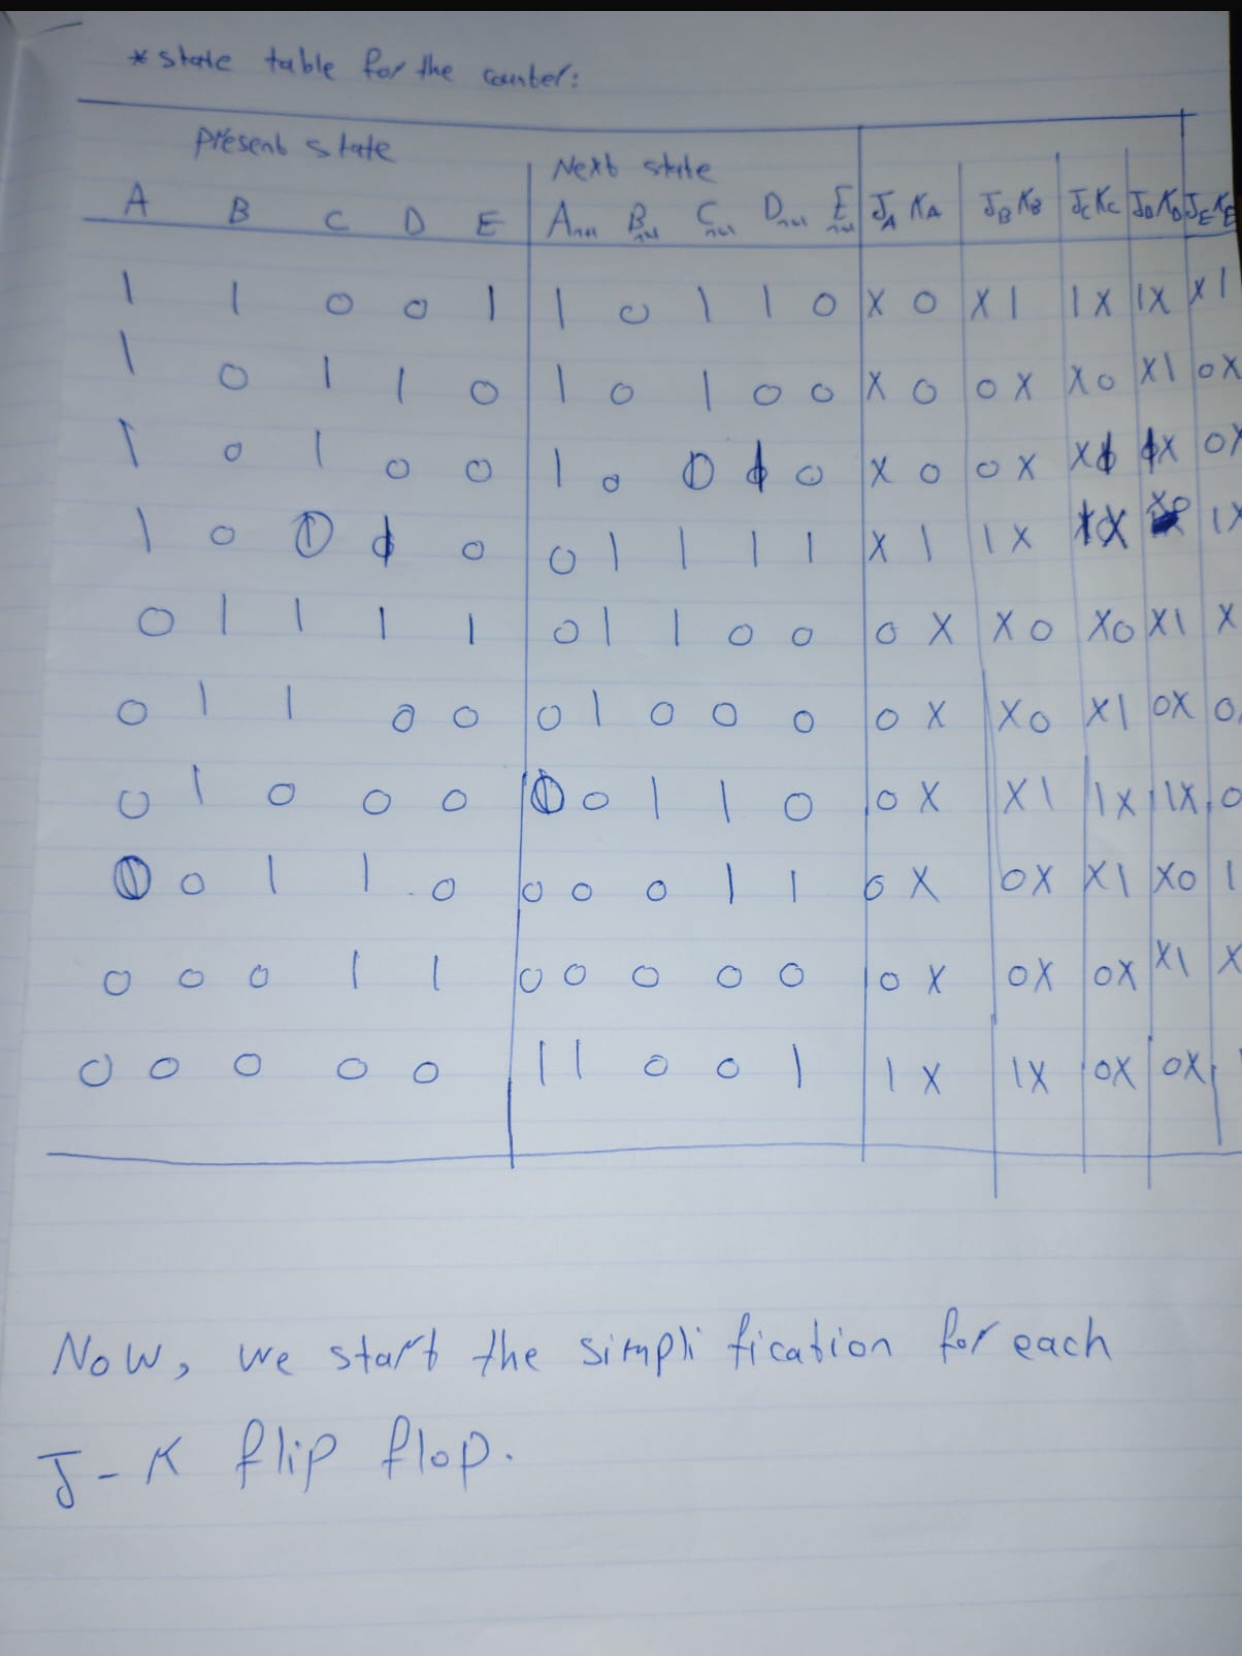 * state table for the counter:
Present state Next state
A B C D E An+1 Bn+1 Cn+1 Dn+1 En+1 JA KA JB KB JC KC JD KD JE KE
1 1 0 0 1 1 0 1 1 0 X 0 X 1 1 X 1X X 1
1 0 1 1 0 1 0 1 0 0 X 0 0 X X 0 X1 0X
1 0 1 0 0 1 0 0 X 0 0 X X X 0X
1 0 0 0 1 1 1 1 X 1 1 X X 1X
0 1 1 1 1 0 1 1 0 0 0 X X 0 X0 X1 X
0 1 1 0 0 0 1 0 0 0 0 X X0 X1 0X 0
0 1 0 0 0 0 1 1 0 0 X X1 1X 1X 0
0 1 1 0 0 0 0 1 1 0 X 0X X1 X0 1
0 0 0 1 1 0 0 0 0 0 0 X 0X 0X X1 X
0 0 0 0 0 1 1 0 0 1 1 X 1X 0X 0X
Now, we start the simplification for each
J-K flip flop.